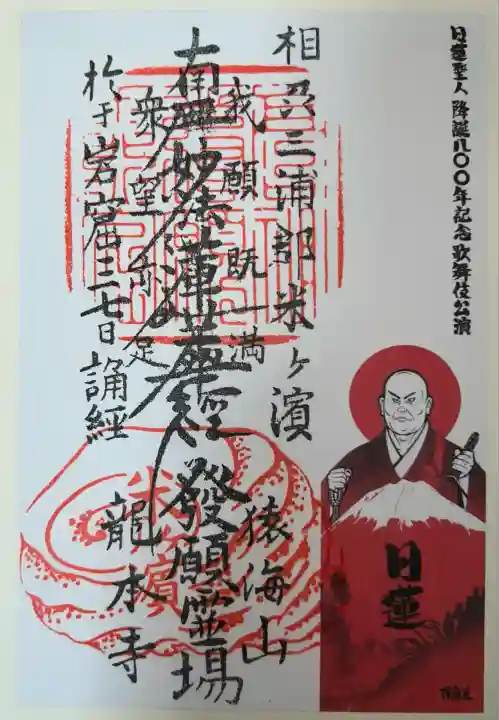 日蓮聖人降誕八〇〇年記念歌舞伎公演
日蓮
相
三浦郡米ヶ濱
猿海山
我願既満
南無妙法蓮華經
發願霊場
衆望亦足
於于岩窟三七日誦経
龍本寺
米
濱